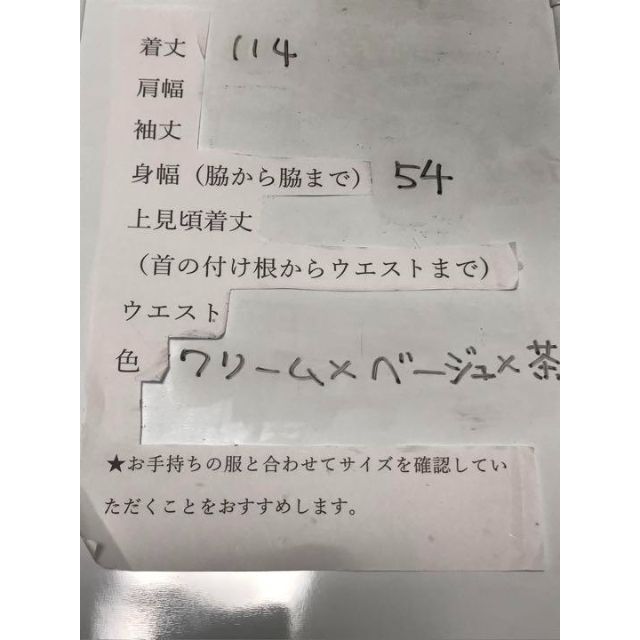 着丈 114
肩幅
袖丈
身幅（脇から脇まで） 54
上見頃着丈
（首の付け根からウエストまで）
ウエスト
色 クリーム×ベージュ×茶
★お手持ちの服と合わせてサイズを確認してい
ただくことをおすすめします。